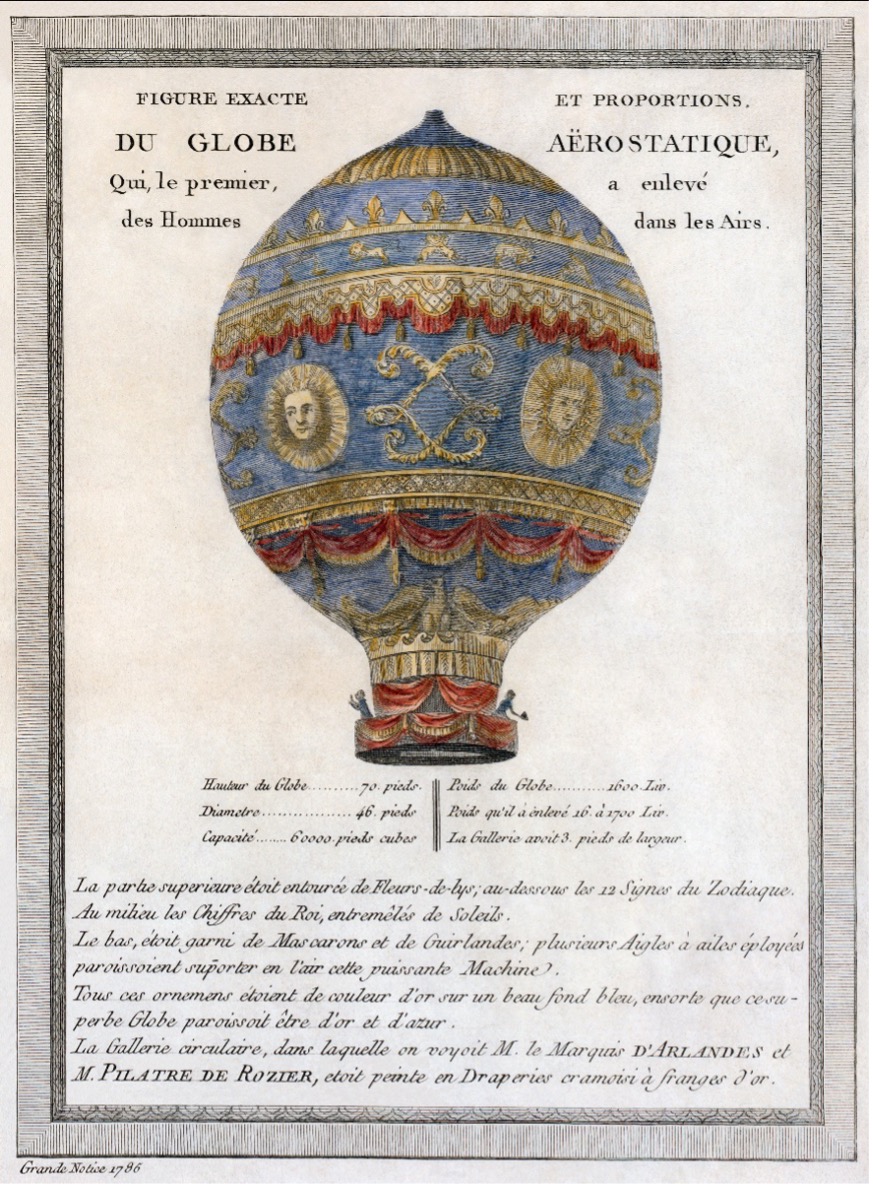 FIGURE EXACTE ET PROPORTIONS,
DU GLOBE AËROSTATIQUE,
Qui, le premier, a enlevé
des Hommes dans les Airs.
Hauteur du Globe..........70. pieds.
Diametre.................46. pieds
Capacité.......60000. pieds cubes
Poids du Globe..........1600. Liv.
Poids qu'il à enlevé 16. à 1700 Liv.
La Gallerie avoit 3. pieds de largeur.
La partie superieure étoit entourée de Fleurs-de-lys; au-dessous les 12 Signes du Zodiaque.
Au milieu les Chiffres du Roi, entremêlés de Soleils.
Le bas, étoit garni de Mascarons et de Guirlandes; plusieurs Aigles à ailes éployées
paroissoient suporter en l'air cette puissante Machine.
Tous ces ornemens étoient de couleur d'or sur un beau fond bleu, ensorte que ce su-
perbe Globe paroissoit être d'or et d'azur.
La Gallerie circulaire, dans laquelle on voyoit M. le Marquis D'ARLANDES et
M. PILATRE DE ROZIER, etoit peinte en Draperies cramoisi à franges d'or.
Grande Notice 1786